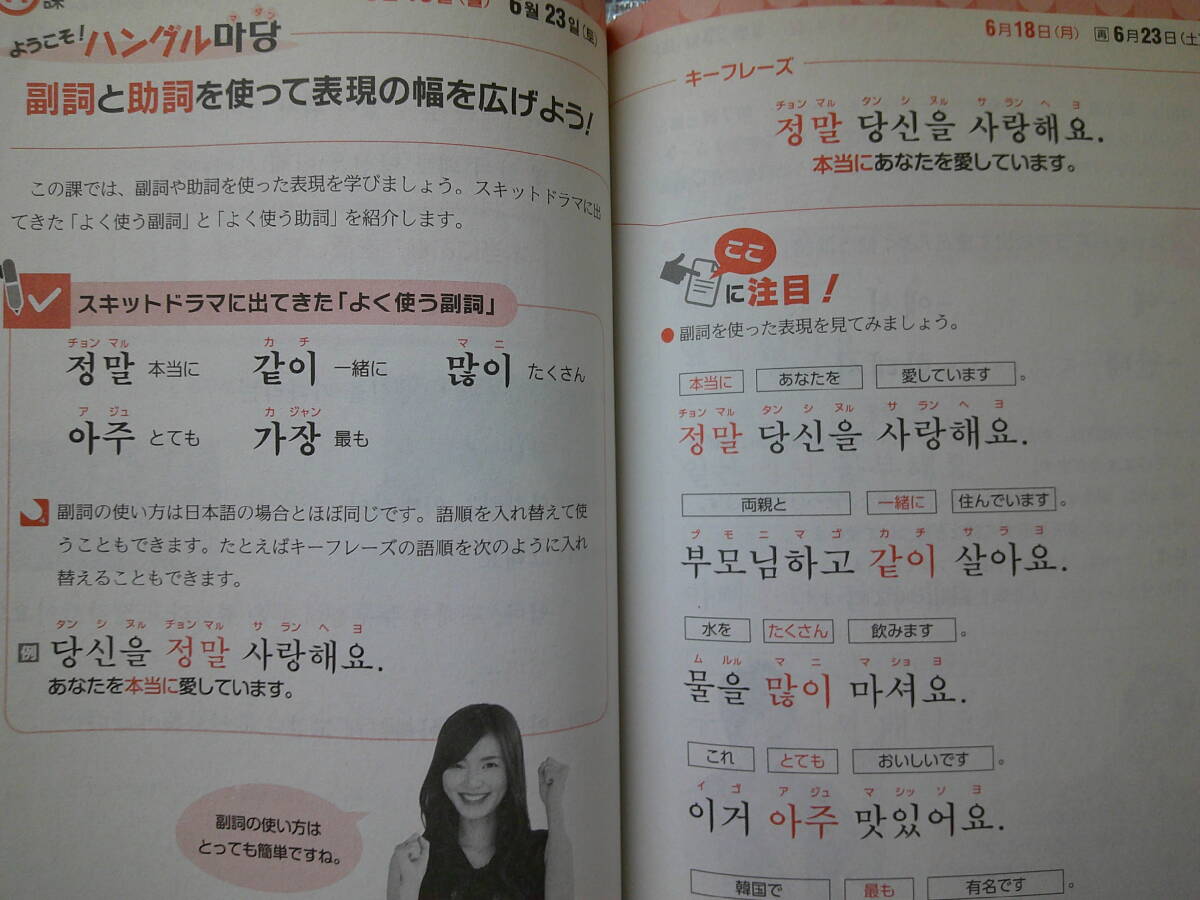 課
6月 23日(土)
ようこそ!ハングル마당
マ ダン
副詞と助詞を使って表現の幅を広げよう!
この課では、副詞や助詞を使った表現を学びましょう。スキットドラマに出
てきた「よく使う副詞」と「よく使う助詞」を紹介します。
スキットドラマに出てきた「よく使う副詞」
チョン マル カ チ マ ニ
정말 本当に 같이 一緒に 많이 たくさん
ア ジュ カ ジャン
아주 とても 가장 最も
副詞の使い方は日本語の場合とほぼ同じです。語順を入れ替えて使
うこともできます。たとえばキーフレーズの語順を次のように入れ
替えることもできます。
タン シ ヌル チョン マル サ ラン ヘ ヨ
例 당신을 정말 사랑해요.
あなたを本当に愛しています。
副詞の使い方は
とっても簡単ですね。
6月18日(月) 再 6月23日(土
キーフレーズ
チョン マル タン シ ヌル サ ラン ヘ ヨ
정말 당신을 사랑해요.
本当にあなたを愛しています。
ここ
に注目!
● 副詞を使った表現を見てみましょう。
本当に あなたを 愛しています 。
チョン マル タン シ ヌル サ ラン ヘ ヨ
정말 당신을 사랑해요.
両親と 一緒に 住んでいます 。
プ モ ニ マ ゴ カ チ サ ラ ヨ
부모님하고 같이 살아요.
水を たくさん 飲みます 。
ム ルル マ ニ マ ショ ヨ
물을 많이 마셔요.
これ とても おいしいです 。
イ ゴ ア ジュ マ シッ ソ ヨ
이거 아주 맛있어요.
韓国で 最も 有名です 。